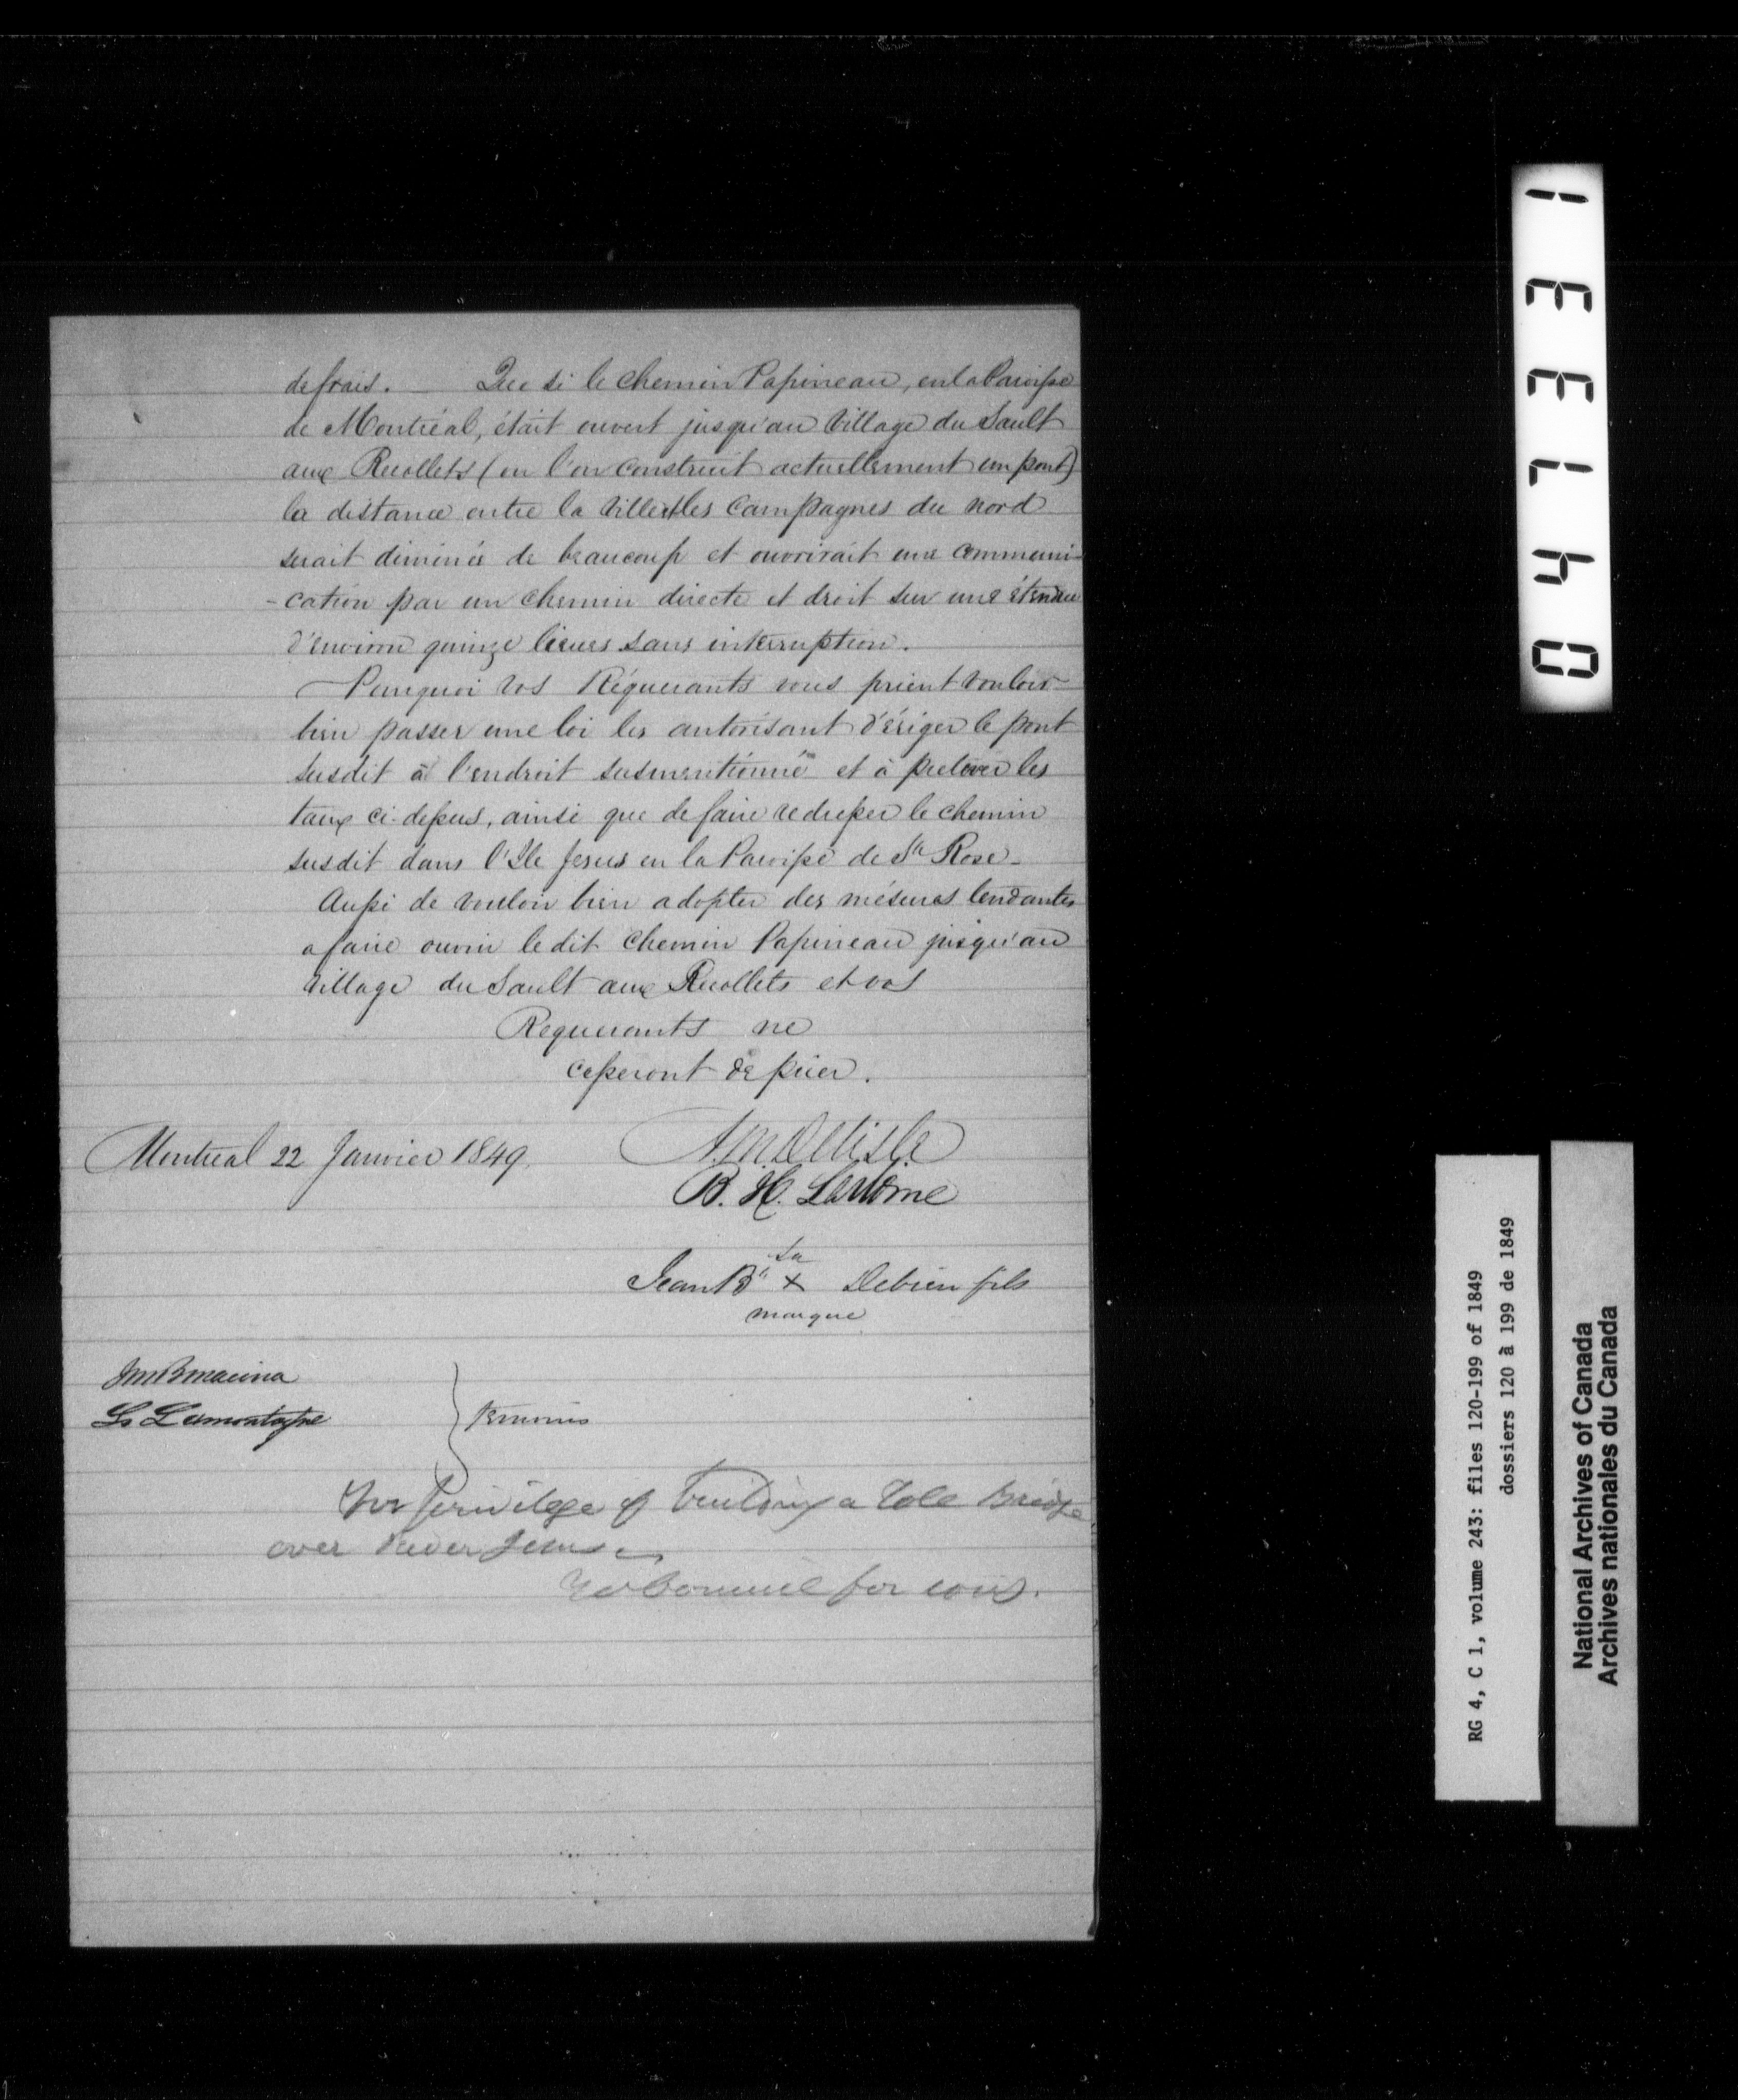 de frais. — Que si le chemin Papineau, en la Paroisse
de Montréal, était ouvert jusqu'au Village du Sault
aux Recollets (ou l'on construit actuellement un pont)
la distance entre la Ville et les Campagnes du nord
serait diminuée de beaucoup et ouvrirait une communi-
-cation par un chemin directe et droit sur une étendue
d'environ quinze lieues sans interruption.
Pourquoi vos Réquerants vous prient vouloir
bien passer une loi les autorisant d'ériger le pont
susdit à l'endroit susmentionné et à prelever les
taux ci-dessus, ainsi que de faire redresser le chemin
susdit dans l'Ile Jesus en la Paroisse de Ste Rose -
Aussi de vouloir bien adopter des mésures tendantes
a faire ouvrir le dit chemin Papineau jusqu'au
village du Sault aux Recollets et vos
Requerants ne
cesseront de prier.
Montreal 22 Janvier 1849.
A. M. Delisle
B. H. Lemoine
sa
Jean Bte x Debien fils
marque
L. Lamontagne
} temoins
For Privilege of building a Tole Bridge
over River Jesus
RG 4, C 1, volume 243: files 120-199 of 1849
dossiers 120 à 199 de 1849
National Archives of Canada
Archives nationales du Canada
047331